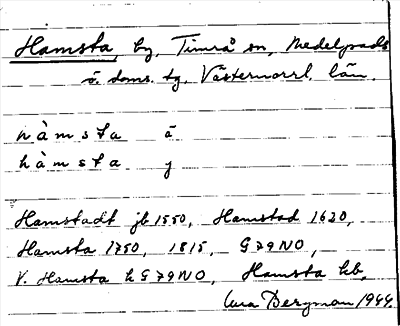 Hamsta, by, Timrå sn, Medelpads
ö. doms. tg, Västernorrl. län.
hàmsta ä
hàmsta y
Hamstadt jb 1550, Hamstad 1620,
Hamsta 1750, 1815, G79NO,
V. Hamsta h G79NO, Hamsta kb,
Bergman 1944.